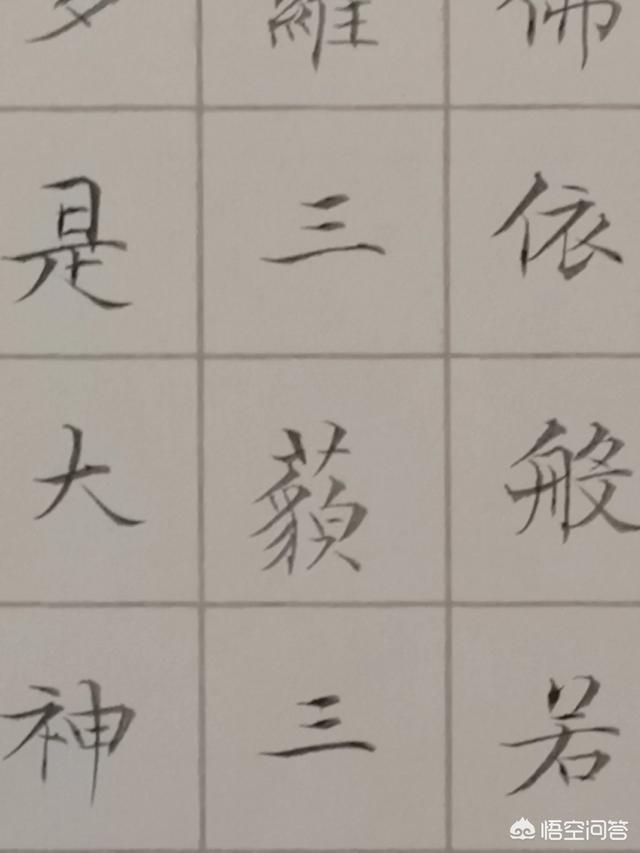 佛依般若
羅三藐三
多是大神
悟空问答